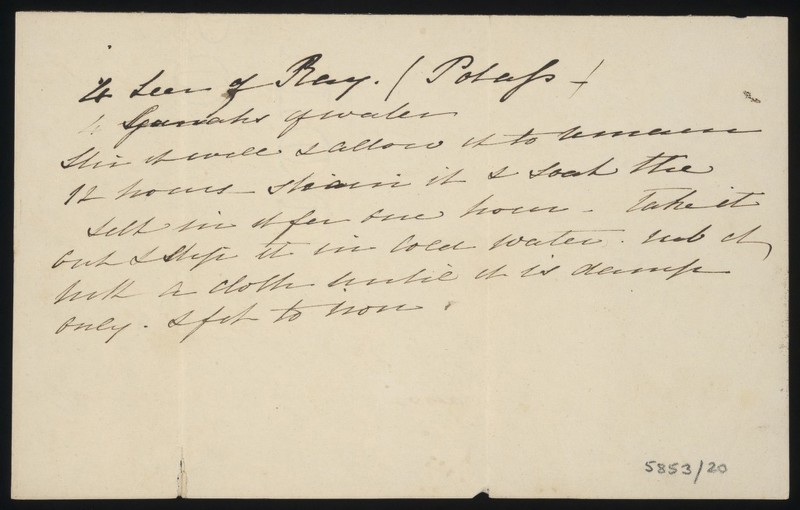 ¼ Seer of Ray. (Potash)
4 Gurrahs of water
Stir it well & allow it to remain
12 hours strain it & soak the
silk in it for one hour - Take it
out & dip it in cold water. rub it
with a cloth until it is damp
only. & fit to iron.
5853/20